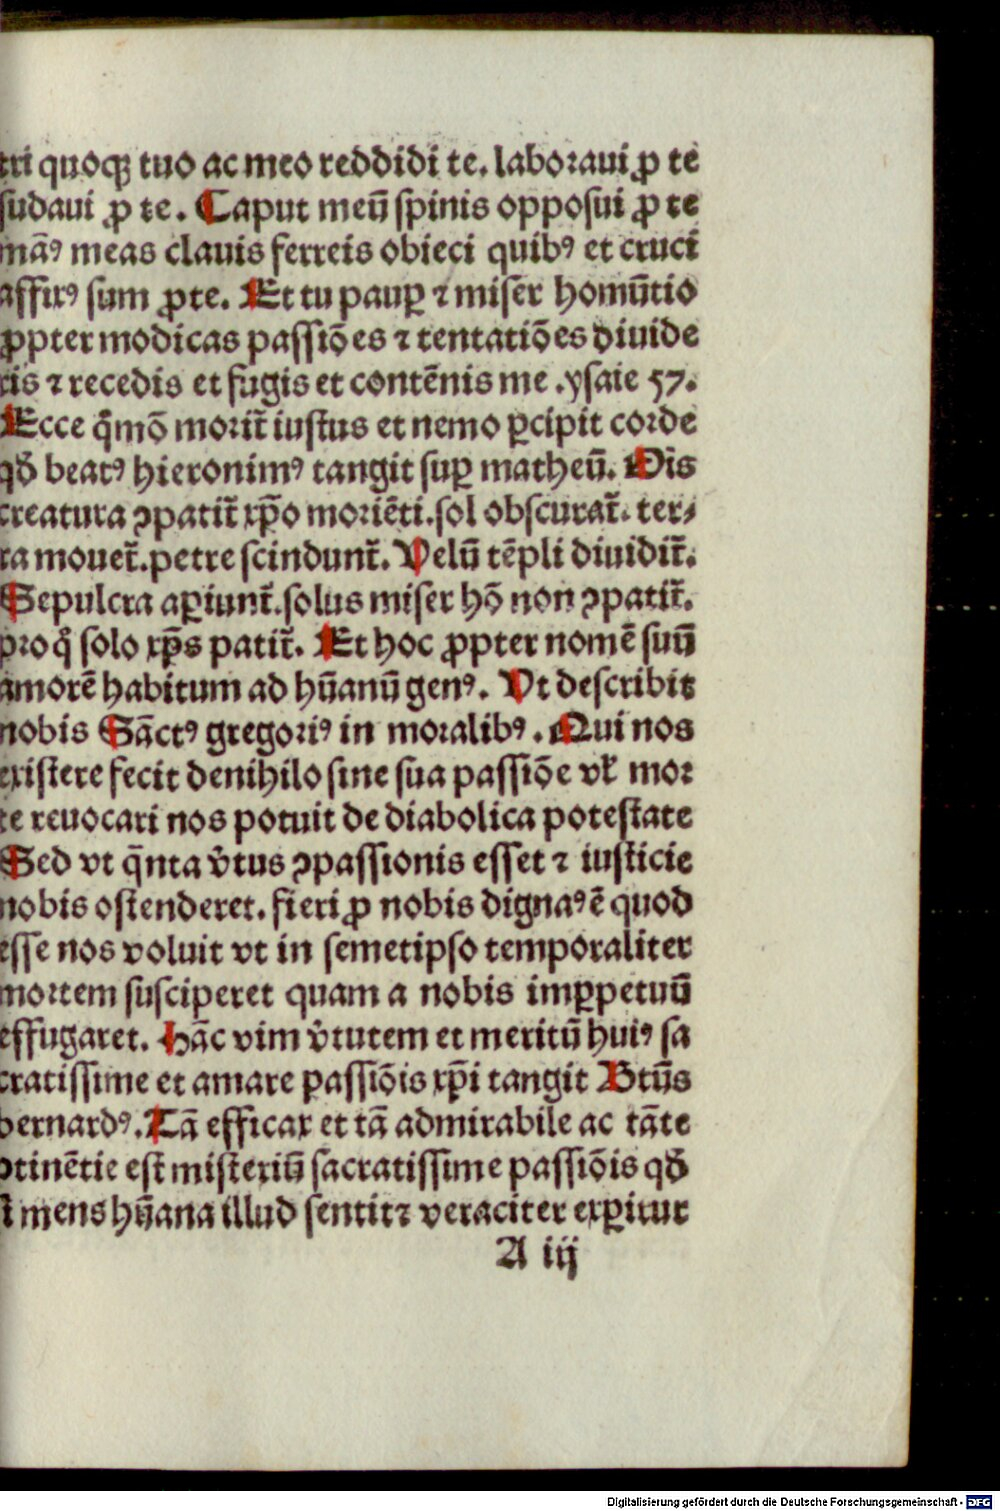 tri quoqꝫ tuo ac meo reddidi te. laboraui ꝓ te
sudaui ꝓ te. Caput meū spinis opposui ꝓ te
māꝰ meas clauis ferreis obieci quibꝰ et cruci
affixꝰ sum ꝓte. Et tu pauꝑ ⁊ miser homūtio
ꝓpter modicas passiōes ⁊ tentatiōes diuide
ris ⁊ recedis et fugis et contēnis me .ysaie 57.
Ecce q̄mō morit̄ iustus et nemo ꝑcipit corde
qđ beatꝰ hieronimꝰ tangit suꝑ matheū. Ois
creatura ꝯpatit̄ xp̄o moriēti.sol obscurat̄. ter⸗
ra mouet̄.petre scindunt̄. Velū tēpli diuidit̄.
Sepulcra aꝑiunt̄.solus miser hō non ꝯpatit̄.
pro q̊ solo xp̄s patit̄. Et hoc ꝓpter nomē suū
amorē habitum ad hūanū genꝰ. Vt describit
nobis Sāctꝰ gregoriꝰ in moralibꝰ. Qui nos
existere fecit denihilo sine sua passiōe vl̓ mor
te reuocari nos potuit de diabolica potestate
Sed vt q̄nta v̓tus ꝯpassionis esset ⁊ iusticie
nobis ostenderet. fieri ꝓ nobis dignaꝰē quod
esse nos voluit vt in semetipso temporaliter
mortem susciperet quam a nobis imꝑpetuū
effugaret. Hāc vim v̓tutem et meritū huiꝰ sa
cratissime et amare passiōis xp̄i tangit Btūs
bernardꝰ. Tā efficax et tā admirabile ac tāte
ꝯtinētie est misteriū sacratissime passiōis qđ
si mens hūana illud sentit ⁊ veraciter exꝑitur
A iij
Digitalisierung gefördert durch die Deutsche Forschungsgemeinschaft - DFG